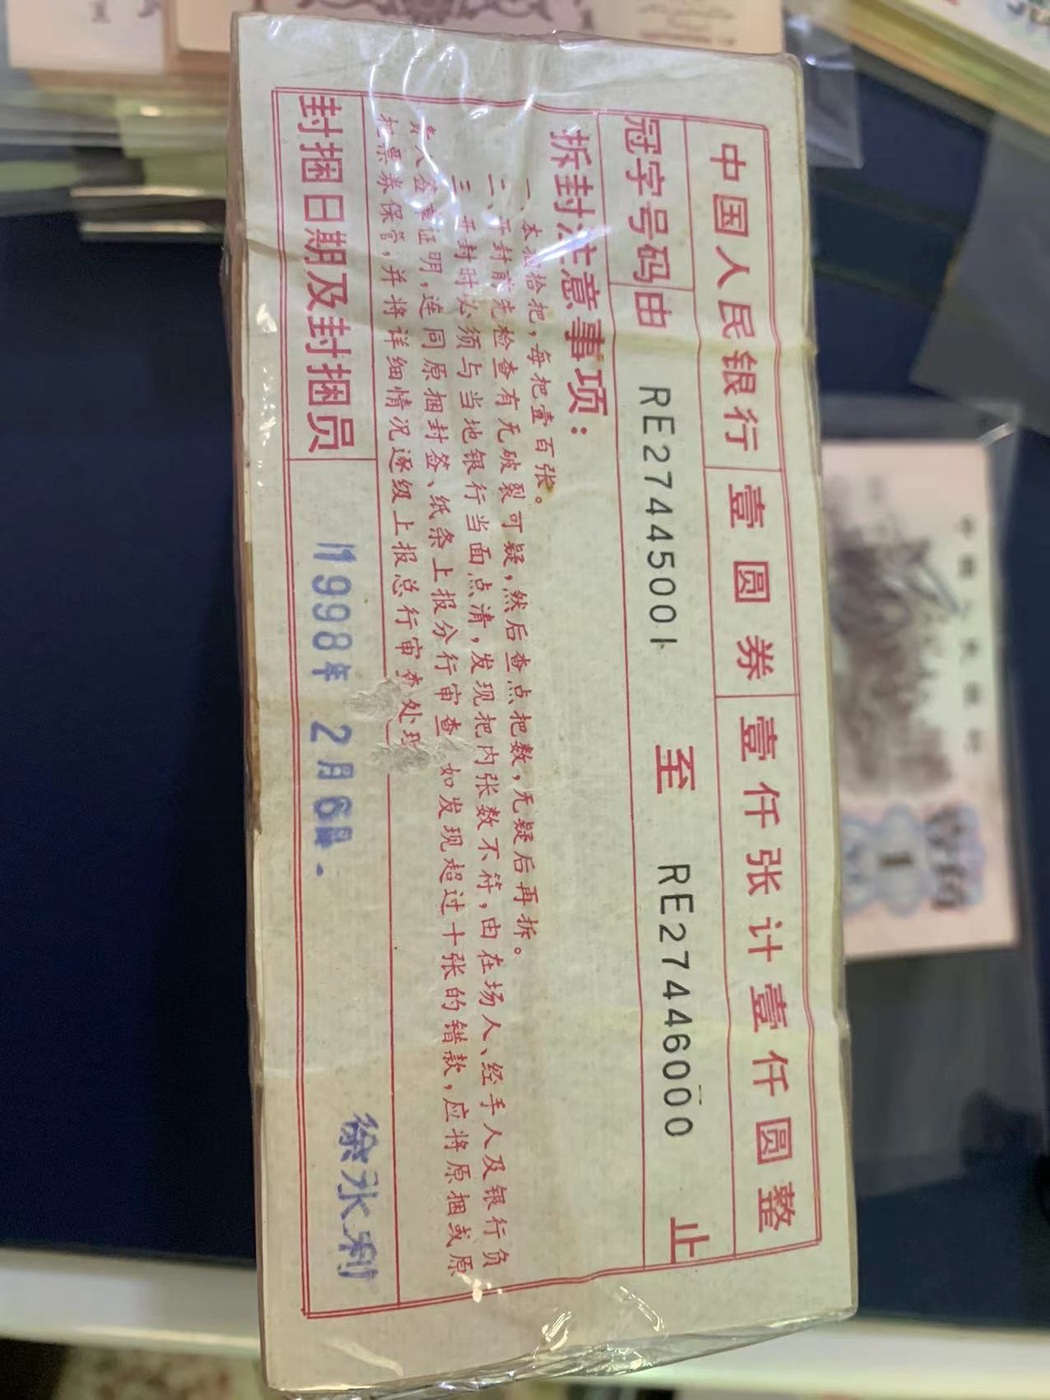 中国人民银行 壹圆券 壹仟张计壹仟圆整
冠字号码由 RE27445001 至 RE27446000 止
拆封注意事项：
一、本捆拾把，每把壹百张。
二、开封前先检查有无破裂可疑，然后查点把数，无疑后再拆。
三、开封时必须与当地银行当面点清，发现把内张数不符，由在场人、经手人及银行负
责人签章证明，连同原捆封签、纸条上报分行审查，如发现超过十张的错款，应将原捆或原
把票券保管，并将详细情况逐级上报总行审查处理
封捆日期及封捆员 1998年 2月6日
徐永利